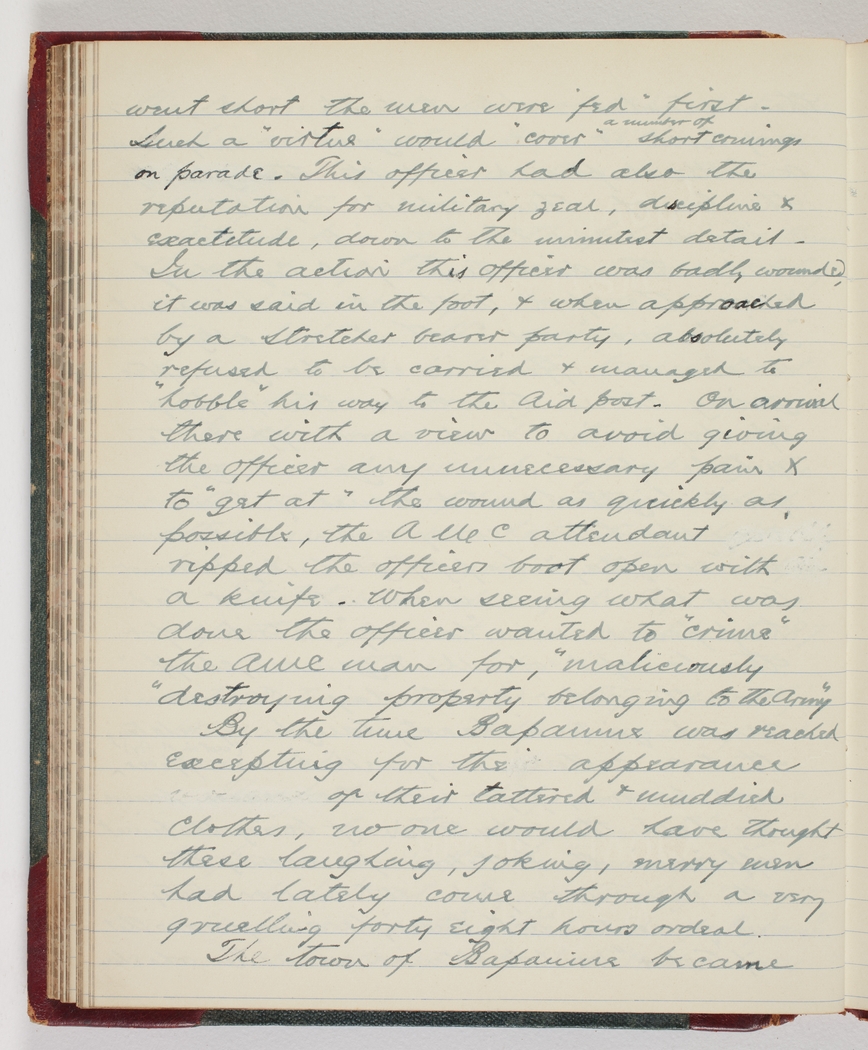 went short the men were "fed" first -
a number of
Such a "virtue" would "cover" short comings
on parade. This officer had also the
reputation for military zeal, discipline &
exactitude, down to the minutest detail -
In the action this officer was badly wounded,
it was said in the foot, & when approached
by a stretcher bearer party, absolutely
refused to be carried & managed to
"hobble" his way to the Aid post. On arrival
there with a view to avoid giving
the officer any unnecessary pain &
to "get at" the wound as quickly as
possible, the A M C attendant
ripped the officers boot open with
a knife. When seeing what was
done the officer wanted to "crime"
the AMC man for, "maliciously
"destroying property belonging to the Army"
By the time Bapaume was reached
excepting for the appearance
of their tattered & muddied
clothes, no one would have thought
these laughing, joking, merry men
had lately come through a very
gruelling forty eight hours ordeal.
The town of Bapaume became